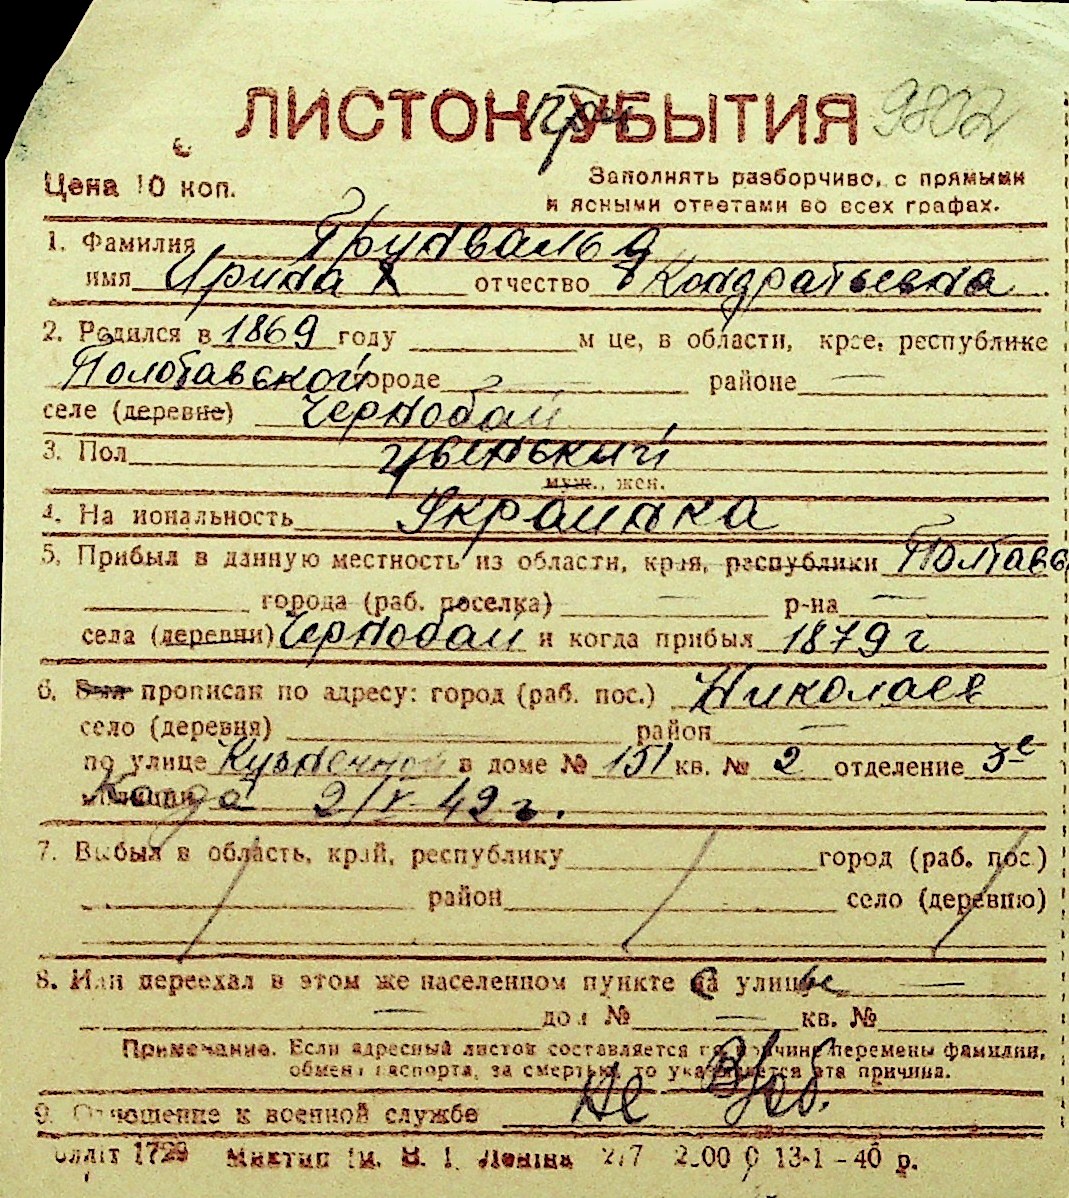 ЛИСТОК УБЫТИЯ 9802
Цена 10 коп.
Заполнять разборчиво, с прямыми
и ясными ответами во всех графах.
1. Фамилия Грунвальд
имя Ирина отчество Кондратьевна
2. Родился в 1869 году м це, в области, крае, республике
Полтавской городе — районе —
селе (деревне) Чернобай
3. Пол женский
муж., жен.
4. Национальность Украинка
5. Прибыл в данную местность из области, края, республики Полтавс
города (раб. поселка) — р-на —
села (деревни) Чернобай и когда прибыл 1879 г
6. Был прописан по адресу: город (раб. пос.) Николаев
село (деревня) район —
по улице Кузнечной в доме № 151 кв. № 2 отделение 3е
милиции Когда 2/V-42 г.
7. Выбыл в область, край, республику город (раб. пос.)
район село (деревню)
8. Или переехал в этом же населенном пункте с улицы —
— дом № — кв. №
Примечание. Если адресный листок составляется по причине перемены фамилии,
обмена паспорта, за смертью, то указывается эта причина.
9. Отношение к военной службе Не
1729 им. В. І. Леніна 2/7 13-1-40 р.